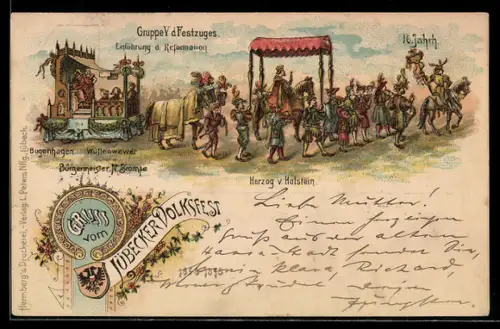 Gruppe V d Festzuges.
Einführung d. Reformation
16. Jahrh.
Bugenhagen Wullenwewer
Bürgermeister N. Bromse
Herzog v. Holstein
Hermberg's Druckerei.- Verlag: L. Peters Nflg. Lübeck.
GRUSS
vom
LÜBECKER VOLKSFEST
Liebe Mutter!
Einen
Gruß aus der alten
Hansa-Stadt sendet Dir,
Klara, Richard,